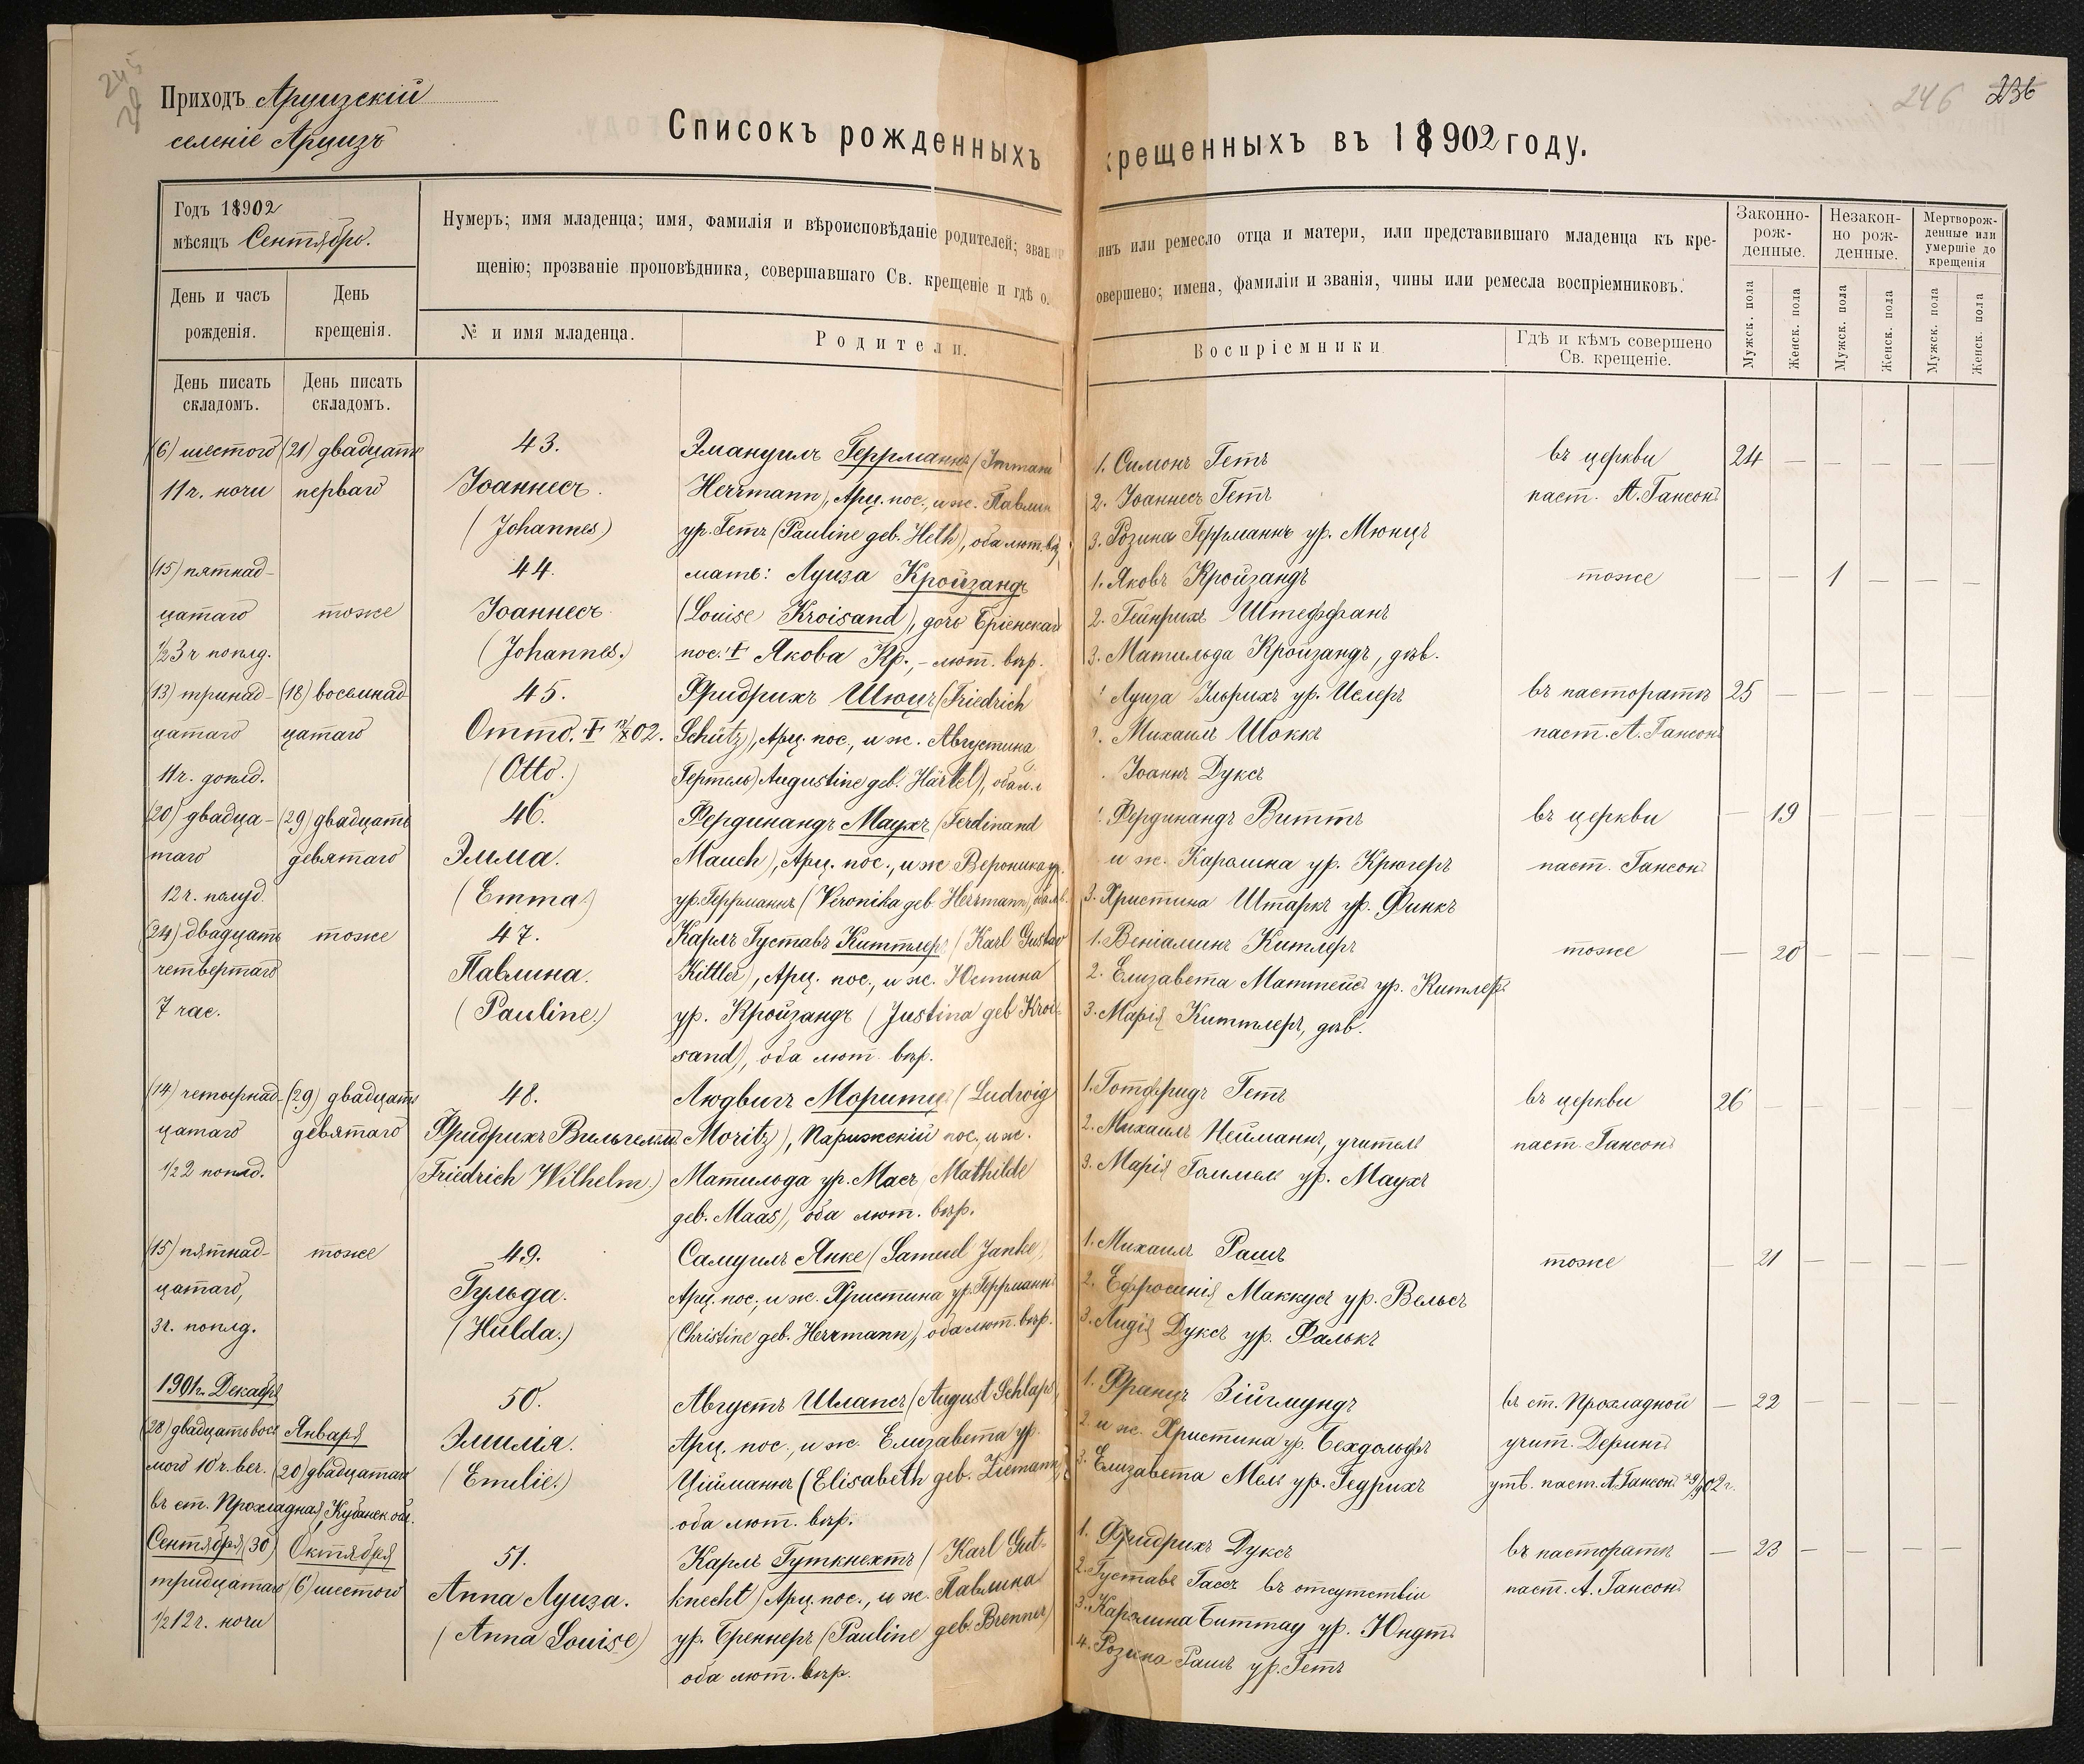 245
Приходъ Арцизскій
селеніе Арцизъ
246 236
Списокъ рожденныхъ крещенныхъ въ 18902 году.
Годъ 18902
мѣсяцъ Сентябрь.
День и часъ рожденія.
День крещенія.
Нумеръ; имя младенца; имя, фамилія и вѣроисповѣданіе родителей; зван инъ или ремесло отца и матери, или представившаго младенца къ кре-
щенію; прозваніе проповѣдника, совершавшаго Св. крещеніе и гдѣ о. овершено; имена, фамиліи и званія, чины или ремесла воспріемниковъ.
№ и имя младенца.
Родители.
Воспріемники
Гдѣ и кѣмъ совершено
Св. крещеніе.
Законно-
рож-
денные.
Незакон-
но рож-
денные.
Мертворож-
денные или
умершіе до
крещенія
Мужск. пола
Женск. пола
Мужск. пола
Женск. пола
Мужск. пола
Женск. пола
День писать
складомъ.
День писать
складомъ.
(6) шестого
11ч. ночи
(21) двадцать
перваго
43.
Іоаннесъ.
(Johannes)
Эмануилъ Геррманнъ (Immanu
Herrmann), Арц. пос., и ж. Павлин
ур. Гетъ (Pauline geb. Heth), оба лют. вѣр
1. Симонъ Гетъ
2. Іоаннесъ Гетъ
3. Розина Геррманнъ ур. Мюнцъ
въ церкви
паст. А. Гансонъ
24 — — — — —
(15) пятнад-
цатаго
1/2 3 ч попд.
тоже
44.
Іоаннесъ
(Johannes.)
мать: Луиза Кройзандъ
(Louise Kroisand), дочь Бріенскаго
пос. † Якова Кр., - лют. вѣр.
1. Яковъ Кройзандъ
2. Гейнрихъ Штеффанъ
3. Матильда Кройзандъ, дѣв.
тоже
— — 1 — — —
(13) тринад-
цатаго
11ч. допд.
(18) восемнад-
цатаго
45.
Отто. † 02.
(Otto.)
Фридрихъ Шюцъ (Friedrich
Schütz), Арц. пос., и ж. Августина
Гертель) Augustine geb. Härtel), оба л.
Луиза Ульрихъ ур. Иселеръ
Михаилъ Шоккъ
Іоаннъ Дуксъ
въ пасторатѣ
паст. А. Гансонъ
25 — — — — —
(20) двадца-
таго
12ч. полуд.
(29) двадцать
девятаго
46.
Эмма.
(Emma)
Фердинандъ Маухъ (Ferdinand
Mauch), Арц. пос., и ж Вероника ур.
ур. Геррманнъ (Veronika geb. Herrmann), оба л. в.
1 Фердинандъ Виттъ
и ж. Каролина ур. Крюгеръ
3. Христина Штаркъ ур. Финкъ
въ церкви
паст. Гансонъ
— 19 — — — —
(24) двадцать
четвертаго
7 час.
тоже
47.
Павлина.
(Pauline.)
Карлъ Густавъ Киттлеръ (Karl Gustav
Kittler), Арц. пос., и ж. Юстина
ур. Кройзандъ (Justina geb Kroi-
sand), оба лют. вѣр.
1. Веніаминъ Китлеръ
2. Елизавета Маттейсъ ур. Китлеръ
3. Марія Киттлеръ, дѣв.
тоже
— 20 — — — —
(14) четырнад-
цатаго
1/2 2 попд.
(29) двадцать
девятаго
48.
Фридрихъ Вильгельмъ
(Friedrich Wilhelm.)
Людвигъ Моритцъ (Ludwig
Moritz), Парижскій пос., и ж.
Матильда ур. Маесъ Mathilde
geb. Maas), оба лют. вѣр.
1. Готфридъ Гетъ
2. Михаилъ Нейманнъ, учитель
3. Марія Гаммель ур. Маухъ
въ церкви
паст. Гансонъ
26 — — — — —
(15) пятнад-
цатаго,
3ч. попд.
тоже
49.
Гульда.
(Hulda.)
Самуилъ Янке (Samuel Janke)
Арц. пос., и ж. Христина ур. Геррманнъ
(Christine geb. Herrmann), оба лют. вѣр.
1. Михаилъ Рашъ
2. Ефросинія Маккусъ ур. Вельсъ
3. Лидія Дуксъ ур. Фалькъ
тоже
— 21 — — — —
1901г. Декабря
(28) двадцать вось
мого 10 ч. веч.
въ ст. Прохладная, Кубанск. обл.
Января
(20) двадцатаго
50.
Эмилія.
(Emilie.)
Августъ Шлапсъ (August Schlaps)
Арц. пос., и ж. Елизавета ур.
Ційманнъ (Elisabeth geb. Ziemann)
оба лют. вѣр.
1. Францъ Зійгмундъ
2. и ж. Христина ур. Бехдольфъ
3. Елизавета Мель ур. Гедрихъ
въ ст. Прохладной
учит. Дерингъ
утв. паст. А. Гансонъ 02 г.
— 22 — — — —
Сентября (30)
тридцатаго
1/2 12 ч. ночи
Октября
(6) шестого
51.
Анна Луиза.
(Anna Louise)
Карлъ Гуткнехтъ (Karl Gut-
knecht) Арц. пос., и ж. Павлина
ур. Бреннеръ (Pauline geb. Brenner)
оба лют. вѣр.
1. Фридрихъ Дуксъ
2. Густавъ Гассъ въ отсутствіи
3. Каролина Биттау ур. Юндтъ
4. Розина Рашъ ур. Гетъ
въ пасторатѣ
паст. А. Гансонъ
— 23 — — — —